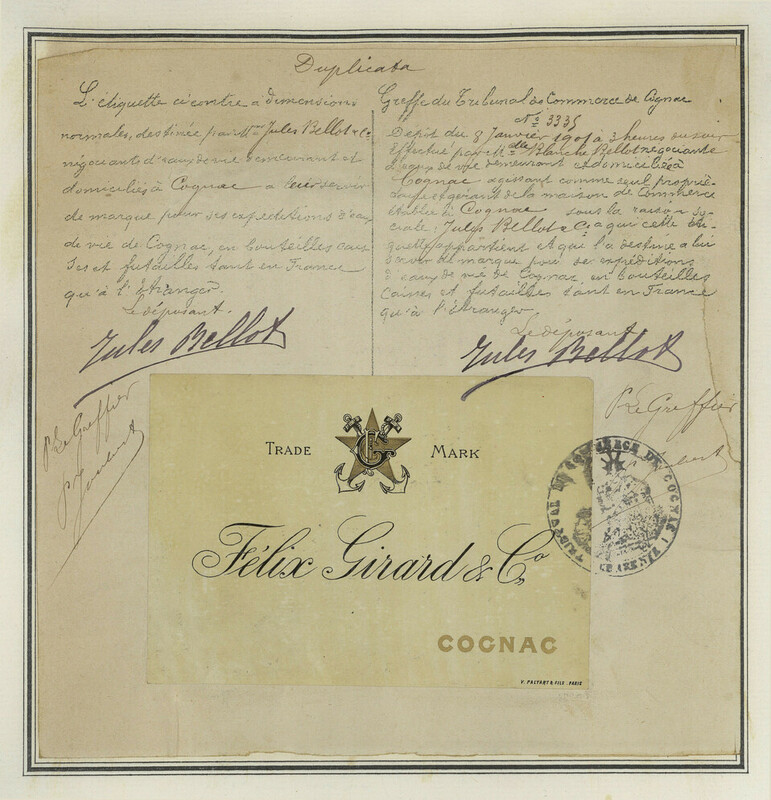 Duplicata
L'étiquette ci contre à dimensions
normales, destinée par Jules Bellot & Cie
négociants d'eaux de vie demeurant et
domiciliés à Cognac à leur servir
de marque pour ses expéditions d'eaux
de vie de Cognac, en bouteilles cais
ses et futailles tant en France
qu'à l'étranger.
Le déposant.
Jules Bellot
P. Le Greffier
Greffe du Tribunal de Commerce de Cognac
No 3335
Dépôt du 8 Janvier 1901 à 3 heures du soir
effectué par Melle Blanche Bellot négociante
d'eaux de vie demeurant et domiciliée à
Cognac agissant comme seul proprié-
et gérant de la maison de Commerce
établie à Cognac sous la raison so-
ciale: Jules Bellot & Cie à qui cette éti-
quette appartient et qui l'a destine à lui
servir de marque pour ses expéditions
d'eaux de vie de Cognac, en bouteilles
Caisses et futailles tant en France
qu'à l'étranger
Le déposant
Jules Bellot
P. Le Greffier
TRADE MARK
Félix Girard & Co
COGNAC
V. PALYART & FILS. PARIS
TRIBUNAL DE COMMERCE DE COGNAC